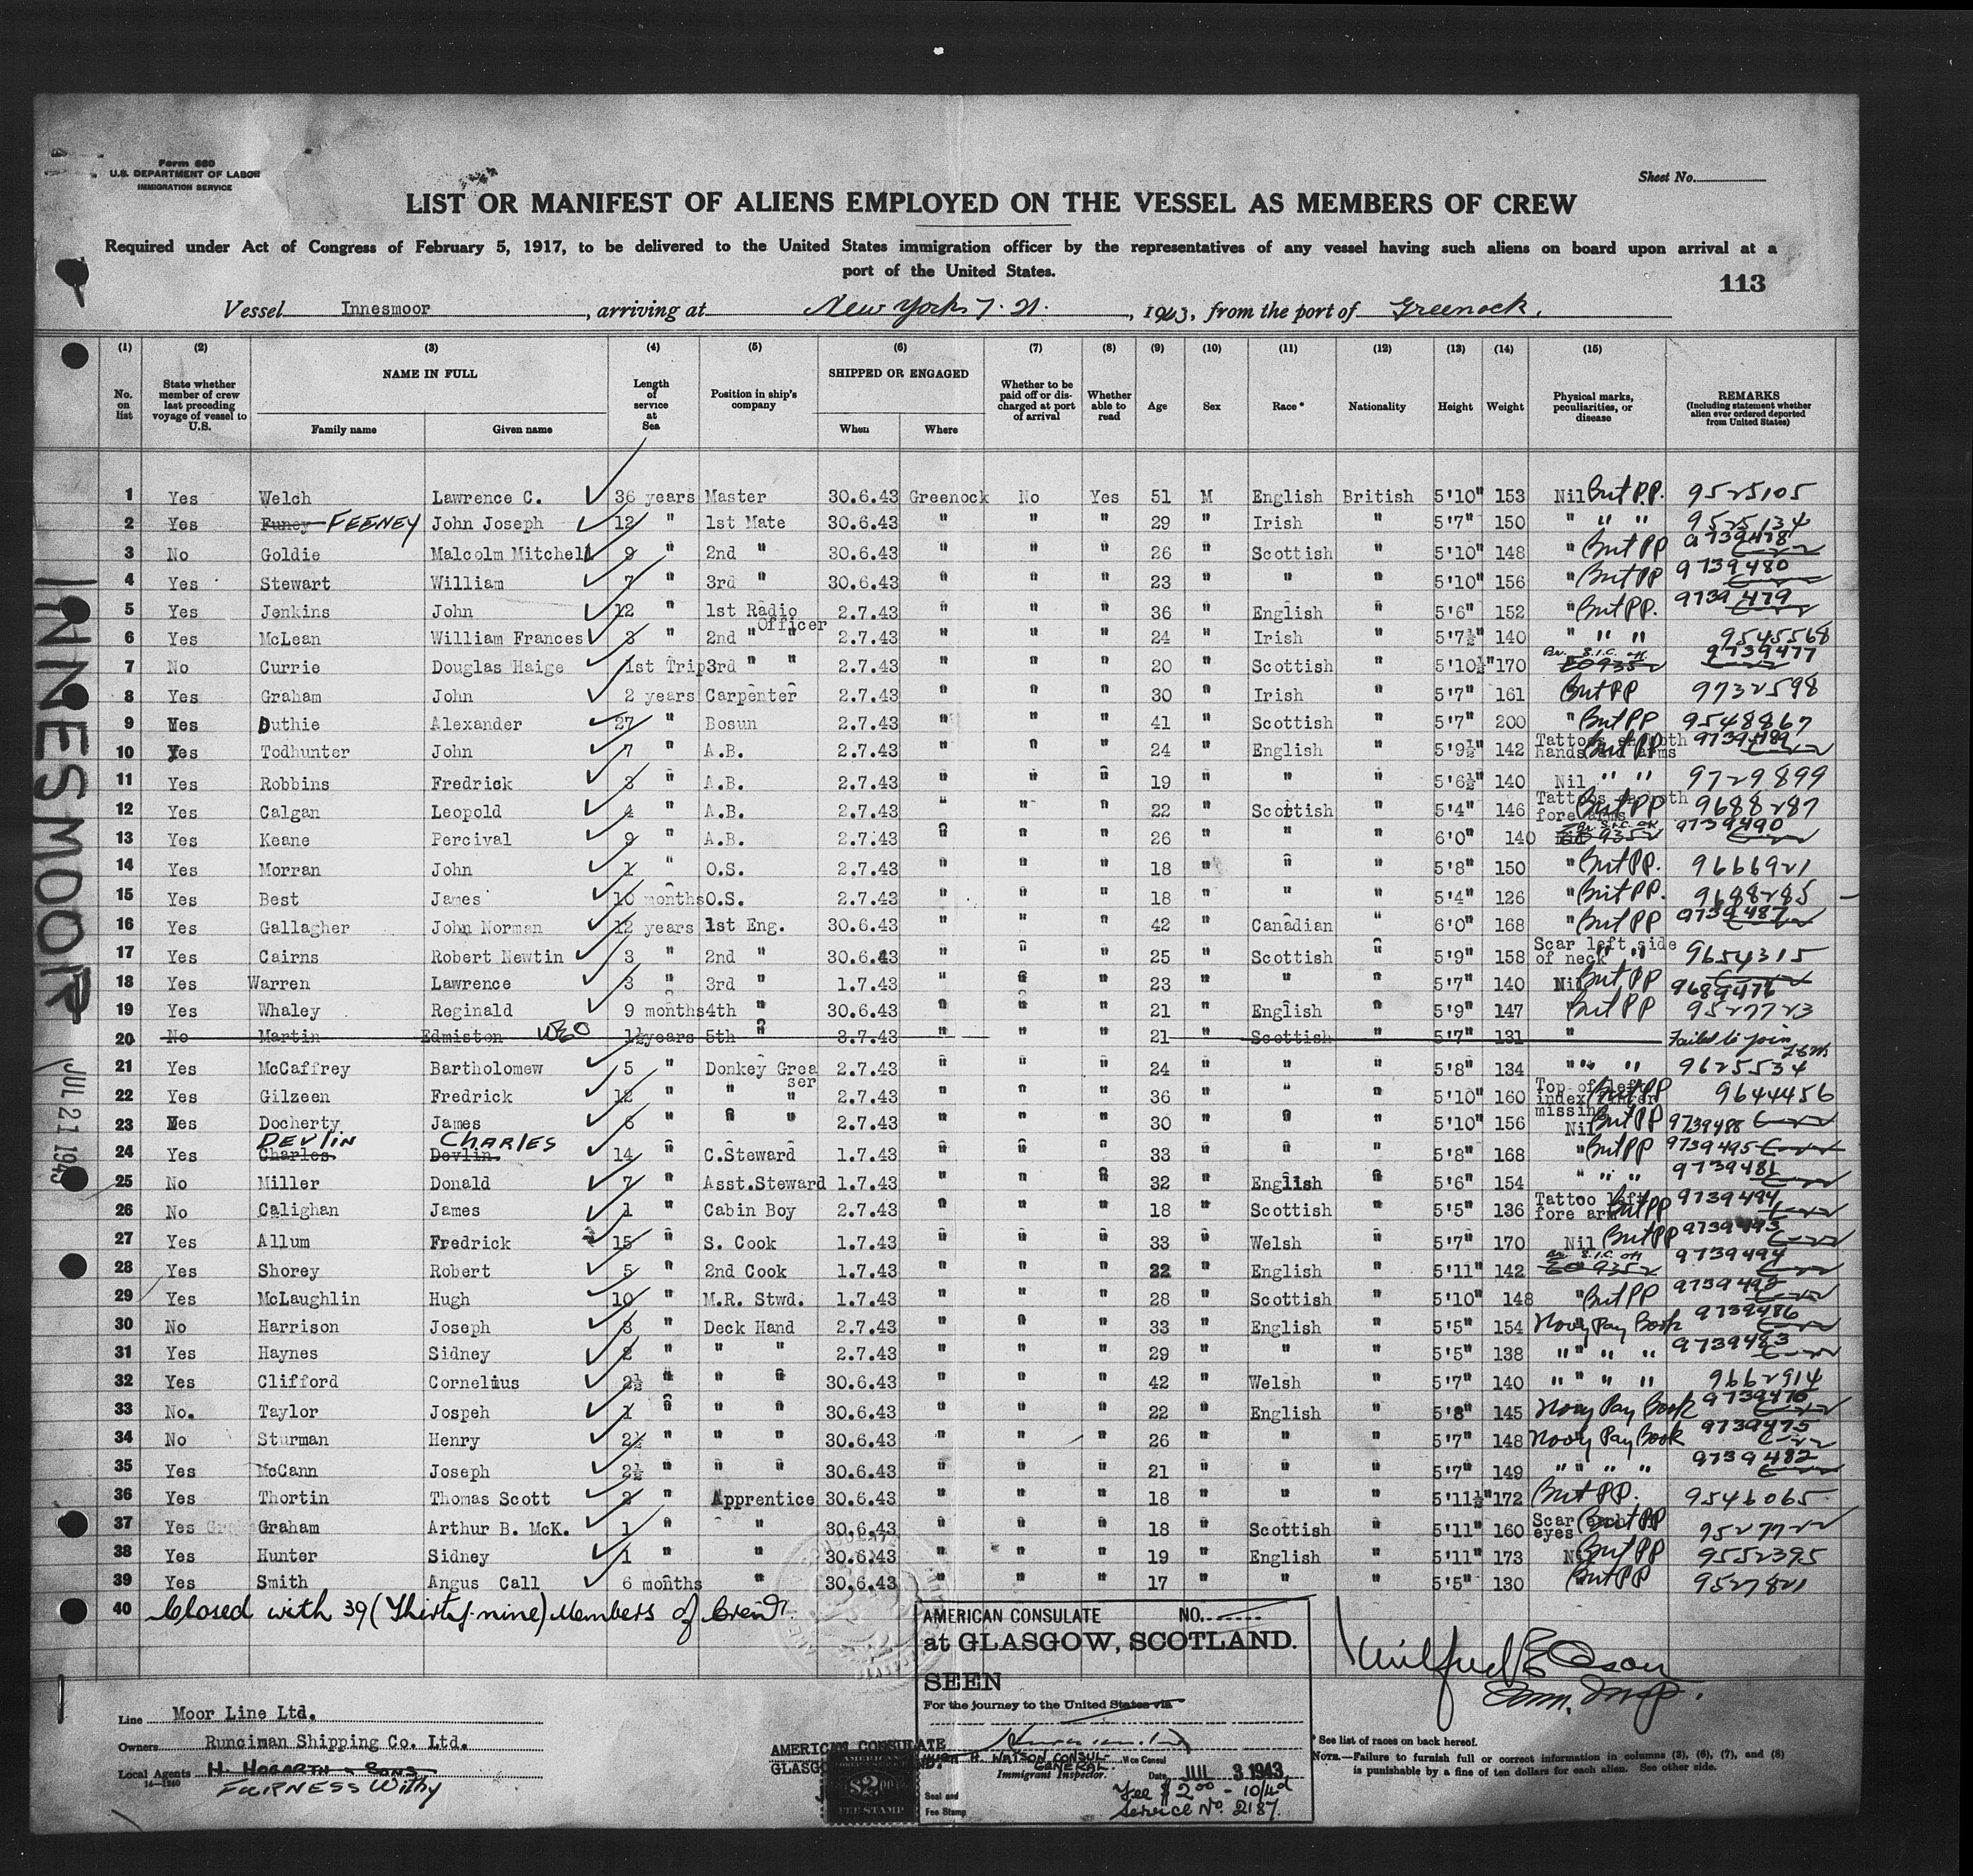 Form 680
U.S. DEPARTMENT OF LABOR
IMMIGRATION SERVICE
Sheet No.
LIST OR MANIFEST OF ALIENS EMPLOYED ON THE VESSEL AS MEMBERS OF CREW
Required under Act of Congress of February 5, 1917, to be delivered to the United States immigration officer by the representatives of any vessel having such aliens on board upon arrival at a
port of the United States.
113
Vessel Innesmoor, arriving at New York 7.21., 1943, from the port of Greenock.
(1) (2) (3) (4) (5) (6) (7) (8) (9) (10) (11) (12) (13) (14) (15)
No. on list State whether member of crew last preceding voyage of vessel to U.S. NAME IN FULL Family name Given name Length of service at Sea Position in ship's company SHIPPED OR ENGAGED When Where Whether to be paid off or discharged at port of arrival Whether able to read Age Sex Race* Nationality Height Weight Physical marks, peculiarities, or disease REMARKS (Including statement whether alien ever ordered deported from United States)
1 Yes Welch Lawrence C. 36 years Master 30.6.43 Greenock No Yes 51 M English British 5'10" 153 Nil Brit P.P. 9525105
2 Yes Funey FEENEY John Joseph 12 " 1st Mate 30.6.43 " " " 29 " Irish " 5'7" 150 " " " 9525134
3 No Goldie Malcolm Mitchell 9 " 2nd " 30.6.43 " " " 26 " Scottish " 5'10" 148 " Brit PP 9739478
4 Yes Stewart William 7 " 3rd " 30.6.43 " " " 23 " " " 5'10" 156 " Brit PP 9739480
5 Yes Jenkins John 12 " 1st Radio Officer 2.7.43 " " " 36 " English " 5'6" 152 " Brit PP. 9739479
6 Yes McLean William Frances 3 " 2nd " " 2.7.43 " " " 24 " Irish " 5'7½" 140 " " " 9545568
7 No Currie Douglas Haige 1st Trip 3rd " " 2.7.43 " " " 20 " Scottish " 5'10½" 170 Br. S.I.C. off. 9739477
8 Yes Graham John 2 years Carpenter 2.7.43 " " " 30 " Irish " 5'7" 161 Brit PP 9732598
9 Yes Duthie Alexander 27 " Bosun 2.7.43 " " " 41 " Scottish " 5'7" 200 " Brit PP 9548867
10 Yes Todhunter John 7 " A.B. 2.7.43 " " " 24 " English " 5'9½" 142 Tattoos on both hands and arms Brit PP 9739489
11 Yes Robbins Fredrick 3 " A.B. 2.7.43 " " " 19 " " " 5'6½" 140 Nil " " 9729899
12 Yes Calgan Leopold 4 " A.B. 2.7.43 " " " 22 " Scottish " 5'4" 146 Tattoos on both fore arms Brit PP 9688287
13 Yes Keane Percival 9 " A.B. 2.7.43 " " " 26 " " " 6'0" 140 Br. S.I.C. off 9739490
14 Yes Morran John 1 " O.S. 2.7.43 " " " 18 " " " 5'8" 150 " Brit PP. 9666921
15 Yes Best James 10 months O.S. 2.7.43 " " " 18 " " " 5'4" 126 " Brit PP. 9688285
16 Yes Gallagher John Norman 12 years 1st Eng. 30.6.43 " " " 42 " Canadian " 6'0" 168 " Brit PP 9739487
17 Yes Cairns Robert Newtin 3 " 2nd " 30.6.43 " " " 25 " Scottish " 5'9" 158 Scar left side of neck " " 9654315
18 Yes Warren Lawrence 3 " 3rd " 1.7.43 " " " 23 " " " 5'7" 140 Nil Brit PP 9689476
19 Yes Whaley Reginald 9 months 4th " 30.6.43 " " " 21 " English " 5'9" 147 " Brit PP 9527723
20 No Martin Edmiston 1½ years 5th " 3.7.43 " 21 Scottish 5'7" 131 " Failed to join
21 Yes McCaffrey Bartholomew 5 " Donkey Greaser 2.7.43 " " " 24 " " " 5'8" 134 " " " 9625534
22 Yes Gilzeen Fredrick 12 " " " 2.7.43 " " " 36 " " " 5'10" 160 Top of left index finger missing Brit PP 9644456
23 Yes Docherty James 6 " " " 2.7.43 " " " 30 " " " 5'10" 156 Nil Brit PP 9739488
24 Yes Charles DEVLIN Devlin CHARLES 14 " C.Steward 1.7.43 " " " 33 " " " 5'8" 168 " Brit PP 9739495
25 No Miller Donald 7 " Asst.Steward 1.7.43 " " " 32 " English " 5'6" 154 " " " 9739481
26 No Calighan James 1 " Cabin Boy 2.7.43 " " " 18 " Scottish " 5'5" 136 Tattoo left fore arm Brit PP 9739494
27 Yes Allum Fredrick 15 " S. Cook 1.7.43 " " " 33 " Welsh " 5'7" 170 Nil Brit PP 9739493
28 Yes Shorey Robert 5 " 2nd Cook 1.7.43 " " " 22 " English " 5'11" 142 Br. S.I.C. off
29 Yes McLaughlin Hugh 10 " M.R. Stwd. 1.7.43 " " " 28 " Scottish " 5'10" 148 " Brit PP
30 No Harrison Joseph 3 " Deck Hand 2.7.43 " " " 33 " English " 5'5" 154 Navy Pay Book 9739486
31 Yes Haynes Sidney 2 " " " 2.7.43 " " " 29 " " " 5'5" 138 " " " " 9739483
32 Yes Clifford Cornelius 2½ " " " 30.6.43 " " " 42 " Welsh " 5'7" 140 " " " " 9662914
33 No. Taylor Jospeh 1 " " " 30.6.43 " " " 22 " English " 5'8" 145 Navy Pay Book 9739476
34 No Sturman Henry 2½ " " " 30.6.43 " " " 26 " " " 5'7" 148 Navy Pay Book 9739475
35 Yes McCann Joseph 2½ " " " 30.6.43 " " " 21 " " " 5'7" 149 " " " " 9739482
36 Yes Thortin Thomas Scott 2 " Apprentice 30.6.43 " " " 18 " " " 5'11½" 172 Brit PP. 9546065
37 Yes Graham Arthur B. McK. 1 " " 30.6.43 " " " 18 " Scottish " 5'11" 160 Scar eyes Brit PP 9527722
38 Yes Hunter Sidney 1 " " 30.6.43 " " " 19 " English " 5'11" 173 Nil Brit PP 9552395
39 Yes Smith Angus Call 6 months " 30.6.43 " " " 17 " " " 5'5" 130 " Brit PP 9527821
40 Closed with 39 (Thirty-nine) Members of Crew.
INNESMOOR
JUL 21 1943
AMERICAN CONSULATE NO.
at GLASGOW, SCOTLAND.
SEEN
For the journey to the United States via
HUGH H. WATSON CONSUL GENERAL. Vice Consul
Immigrant Inspector. Date JUL 3 1943
Seal and Fee Stamp
Fee $2.00 - 10/4d
Service No. 2187.
AMERICAN CONSULATE
$2.00
FEE STAMP
Imm. Insp.
Line Moor Line Ltd.
Owners Runciman Shipping Co. Ltd.
Local Agents H. HOGARTH & SONS
14-1240
FURNESS Withy
* See list of races on back hereof.
NOTE.—Failure to furnish full or correct information in columns (3), (6), (7), and (8)
is punishable by a fine of ten dollars for each alien. See other side.